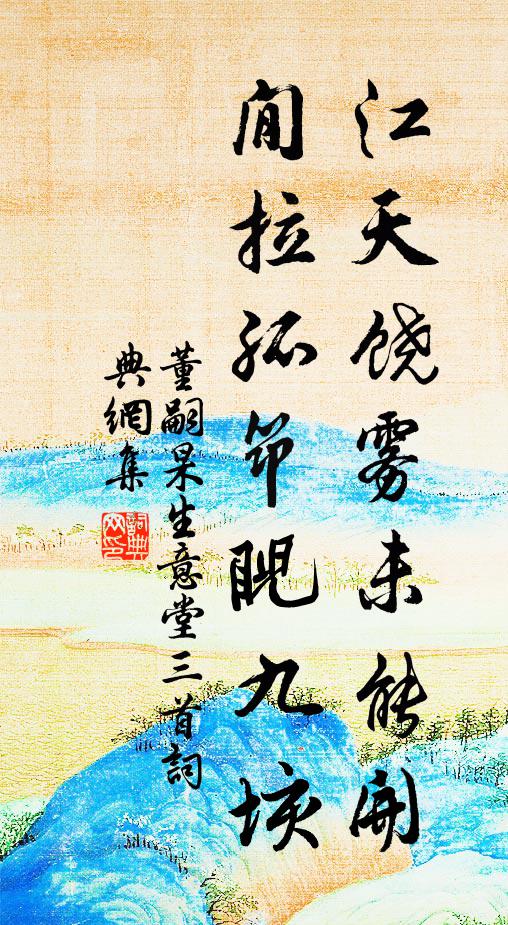 江天饶雾未能开
闲拉孤筇睨九垓
董嗣杲生意堂三首詞
典網集
詞典网印